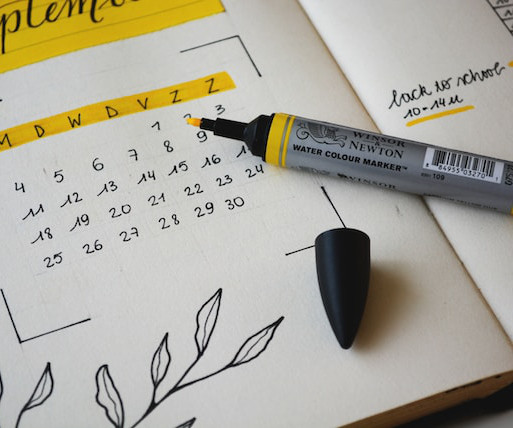 ptemb
M D W D V Z Z
1 3
4 5 6 7 8 9
11 12 13 14 15 16
18 19 20 21 22 23 24
25 26 27 28 29 30
back to school
10-14u
WINSOR
& NEWTON
WATER COLOUR MARKER™
WINSOR
109